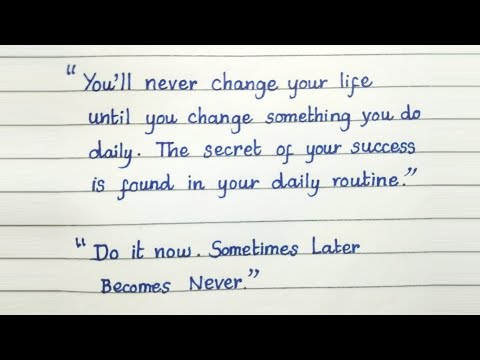 “You'll never change your life
until you change something you do
daily. The secret of your success
is found in your daily routine.”
“Do it now. Sometimes Later
Becomes Never.”